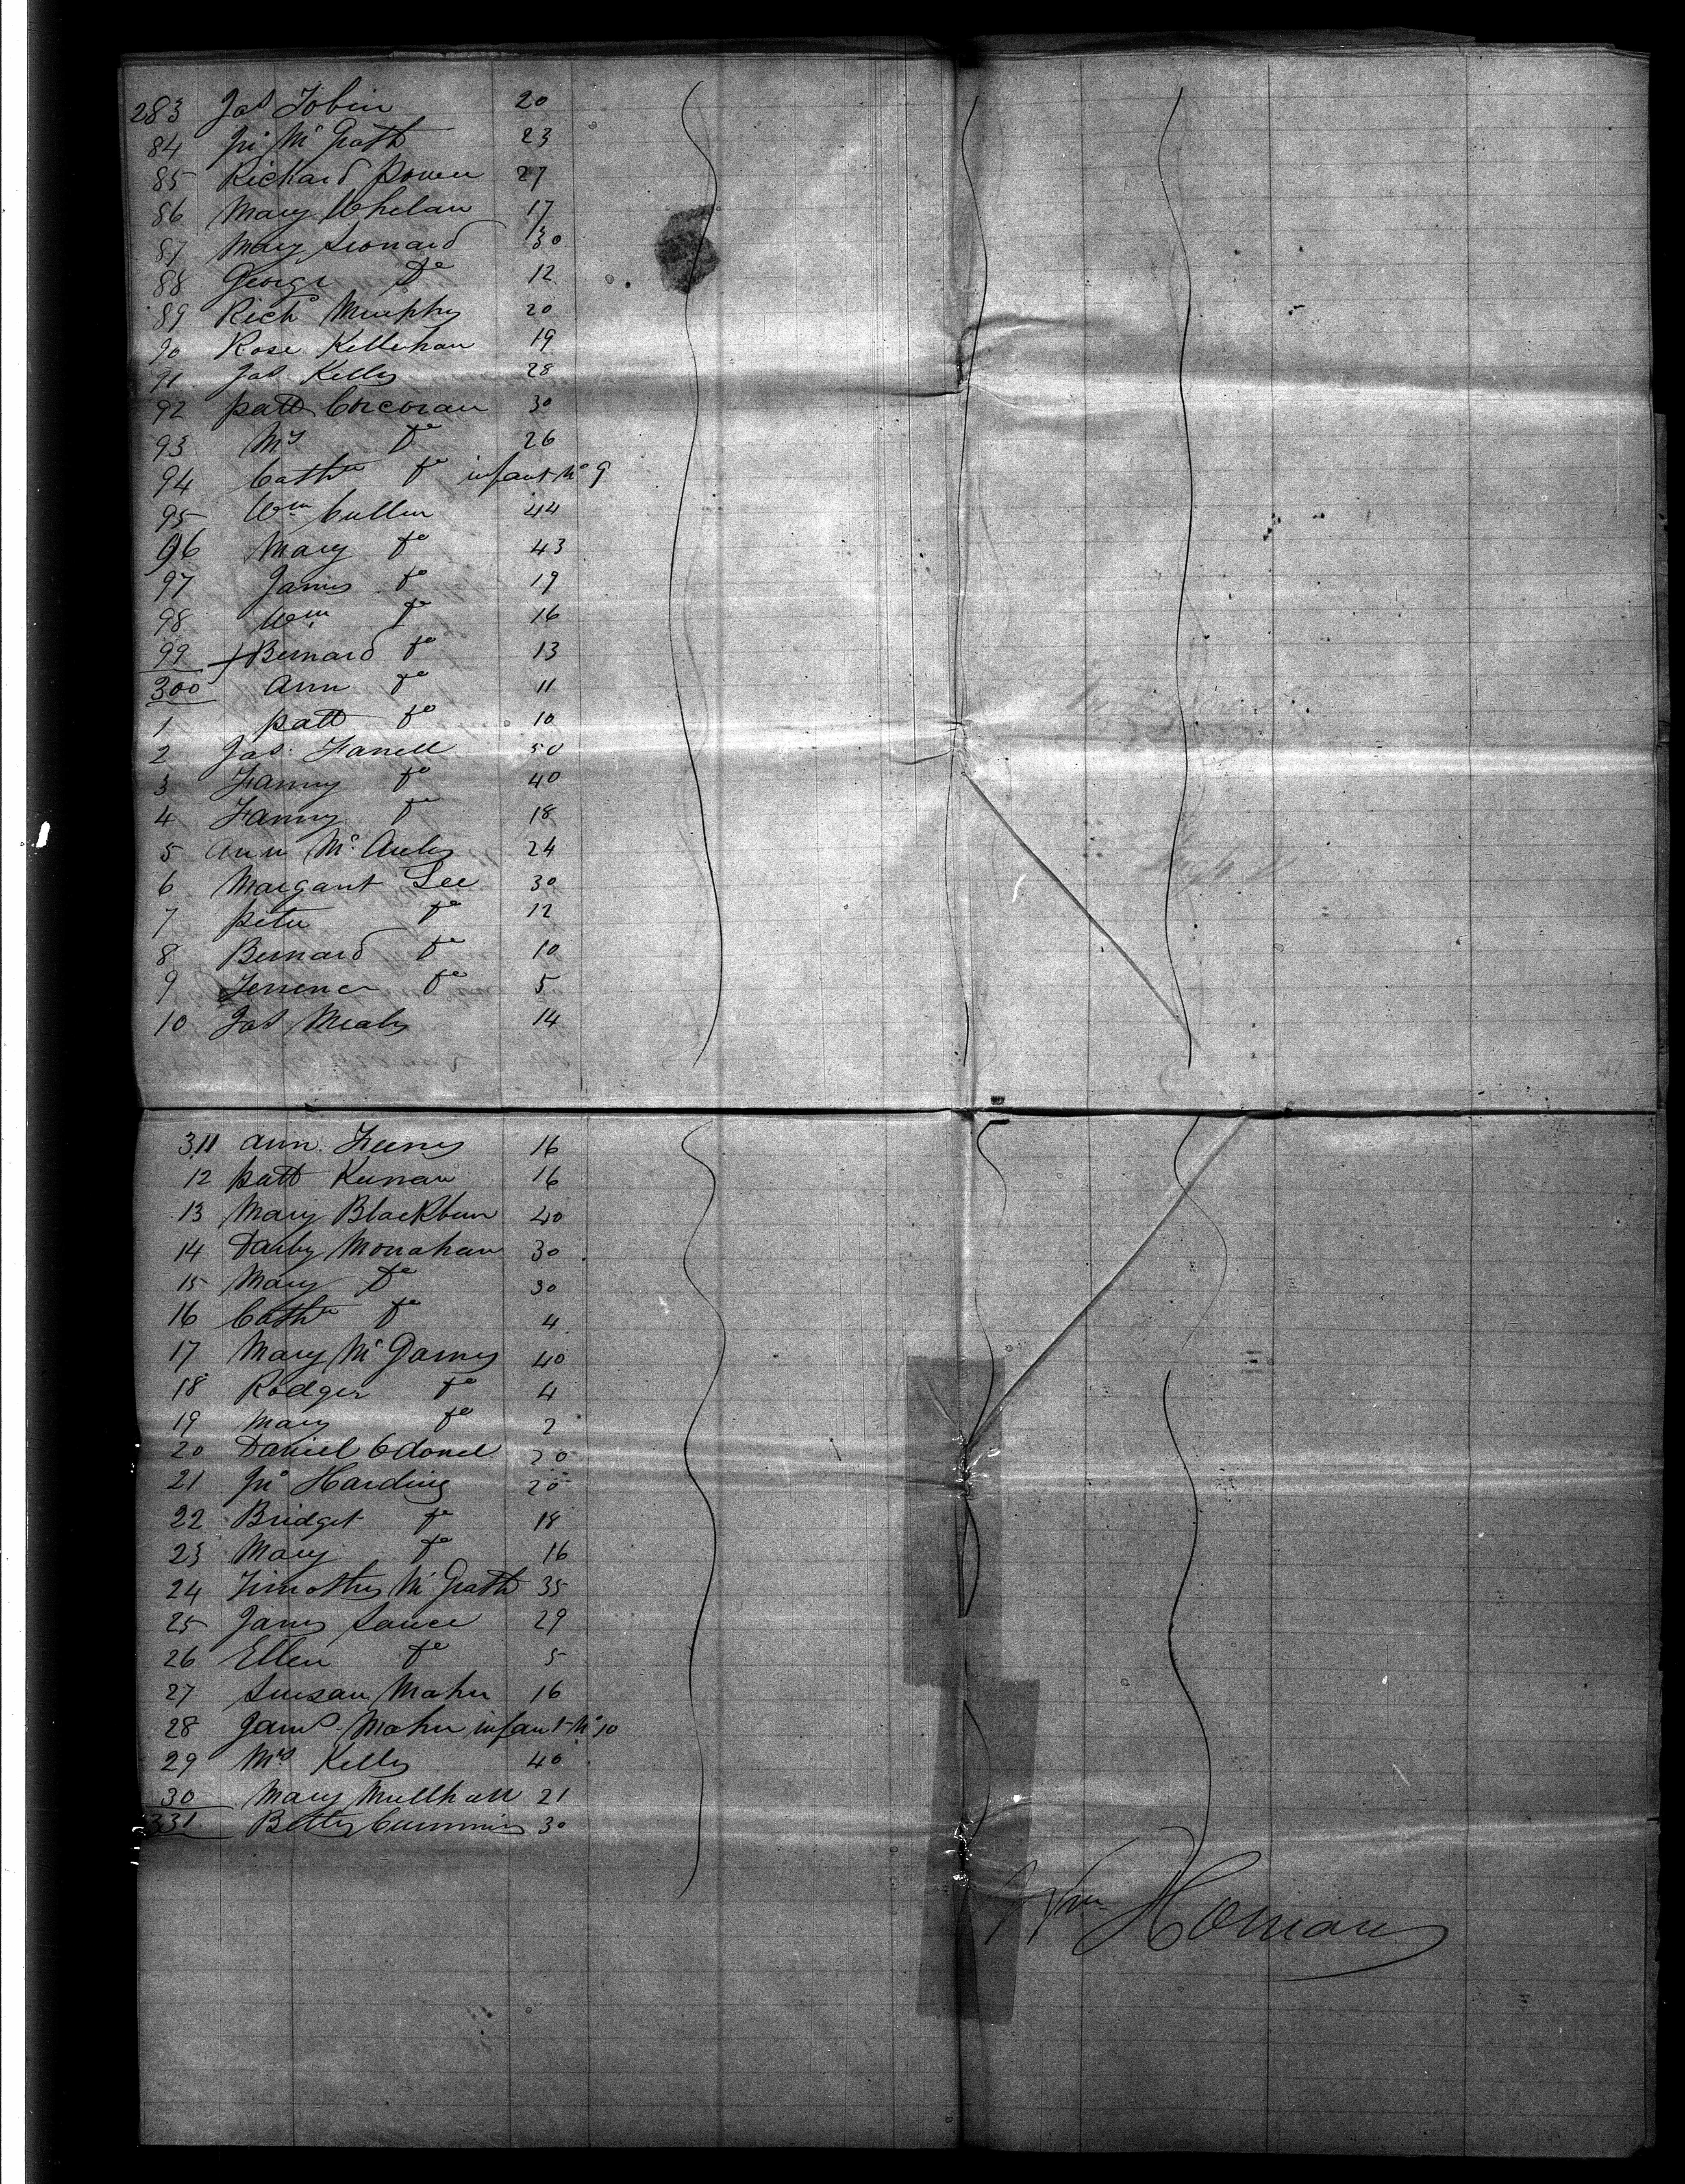 283 Jas Tobin 20
84 Jno McGrath 23
85 Richard Power 27
86 Mary Whelan 17
87 Mary Leonard 30
88 George Do 12
89 Richd Murphy 20
90 Rose Kellehan 19
91 Jas Kelly 28
92 Patt Corcoran 30
93 Mrs Do 26
94 Cathne Do infant Mo 9
95 Wm Cullen 44
96 Mary Do 43
97 James Do 19
98 Wm Do 16
99 + Bernard Do 13
300 Ann Do 11
1 Patt Do 10
2 Jas Farrell 50
3 Fanny Do 40
4 Fanny Do 18
5 Ann McAuley 24
6 Margaret Lee 30
7 Peter Do 12
8 Bernard Do 10
9 Terrence Do 5
10 Jas Mealy 14
311 Ann Feeny 16
12 Patt Keenan 16
13 Mary Blackburn 40
14 Darby Monahan 30
15 Mary Do 30
16 Cathne Do 4
17 Mary McGarry 40
18 Rodger Do 4
19 Mary Do 2
20 Daniel Odonel 20
21 Jno Harding 20
22 Bridget Do 18
23 Mary Do 16
24 Timothy McGrath 35
25 James 29
26 Ellen Do 5
27 Susan Maher 16
28 James Maher infant Mo 10
29 Mrs Kelly 40
30 Mary Mullhall 21
331 Betty Cummins 30
Wm Homan